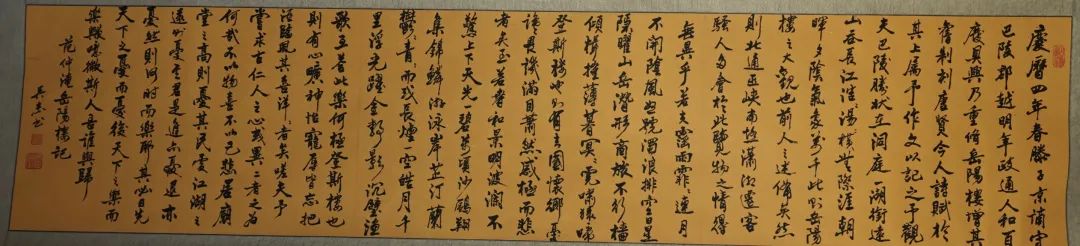 慶曆四年春滕子京謫守
巴陵郡越明年政通人和百
廢具興乃重脩岳陽樓增其
舊制刻唐賢今人詩賦於
其上属予作文以記之予觀
夫巴陵勝狀在洞庭一湖銜遠
山吞長江浩浩湯湯橫無際涯朝
暉夕陰氣象萬千此則岳陽
樓之大觀也前人之述備矣然
則北通巫峽南極瀟湘遷客
騷人多會於此覽物之情得
無異乎若夫霪雨霏霏連月
不開陰風怒號濁浪排空日星
隱曜山岳潛形商旅不行檣
傾楫摧薄暮冥冥虎嘯猿啼
登斯樓也則有去國懷鄉憂
讒畏譏滿目蕭然感極而悲
者矣至若春和景明波瀾不
驚上下天光一碧萬頃沙鷗翔
集錦鱗游泳岸芷汀蘭
鬱鬱青青而或長煙一空皓月千
里浮光躍金静影沉璧漁
歌互答此樂何極登斯樓也
則有心曠神怡寵辱皆忘把
酒臨風其喜洋洋者矣嗟夫予
嘗求古仁人之心或異二者之為
何哉不以物喜不以己悲居廟
堂之高則憂其民處江湖之
遠則憂其君是進亦憂退亦
憂然則何時而樂耶其必曰先
天下之憂而憂後天下之樂而
樂歟噫微斯人吾誰與歸
范仲淹岳陽樓記